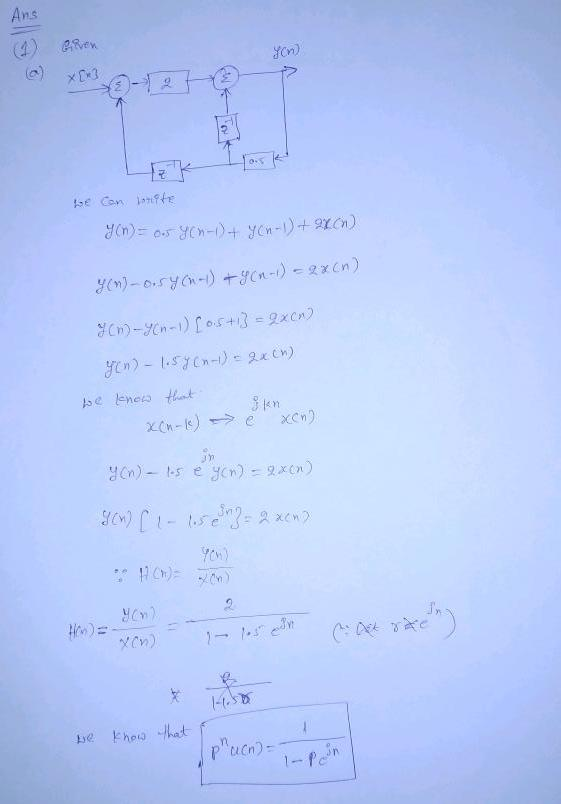 Ans
(1) Given
(a) x[n] Σ 2 Σ y(n)
z⁻¹
z⁻¹ 0.5
we can write
y(n) = 0.5 y(n-1) + y(n-1) + 2x(n)
y(n) - 0.5y(n-1) + y(n-1) = 2x(n)
y(n) - y(n-1) [0.5+1] = 2x(n)
y(n) - 1.5y(n-1) = 2x(n)
we know that
x(n-k) ⇒ e^{jkn} x(n)
y(n) - 1.5 e^{jn} y(n) = 2x(n)
y(n) [1 - 1.5e^{jn}] = 2x(n)
∵ H(n) = y(n)/x(n)
H(n) = y(n)/x(n) = 2/(1 - 1.5 e^{jn})
we know that
pⁿ u(n) = 1/(1 - p e^{jn})